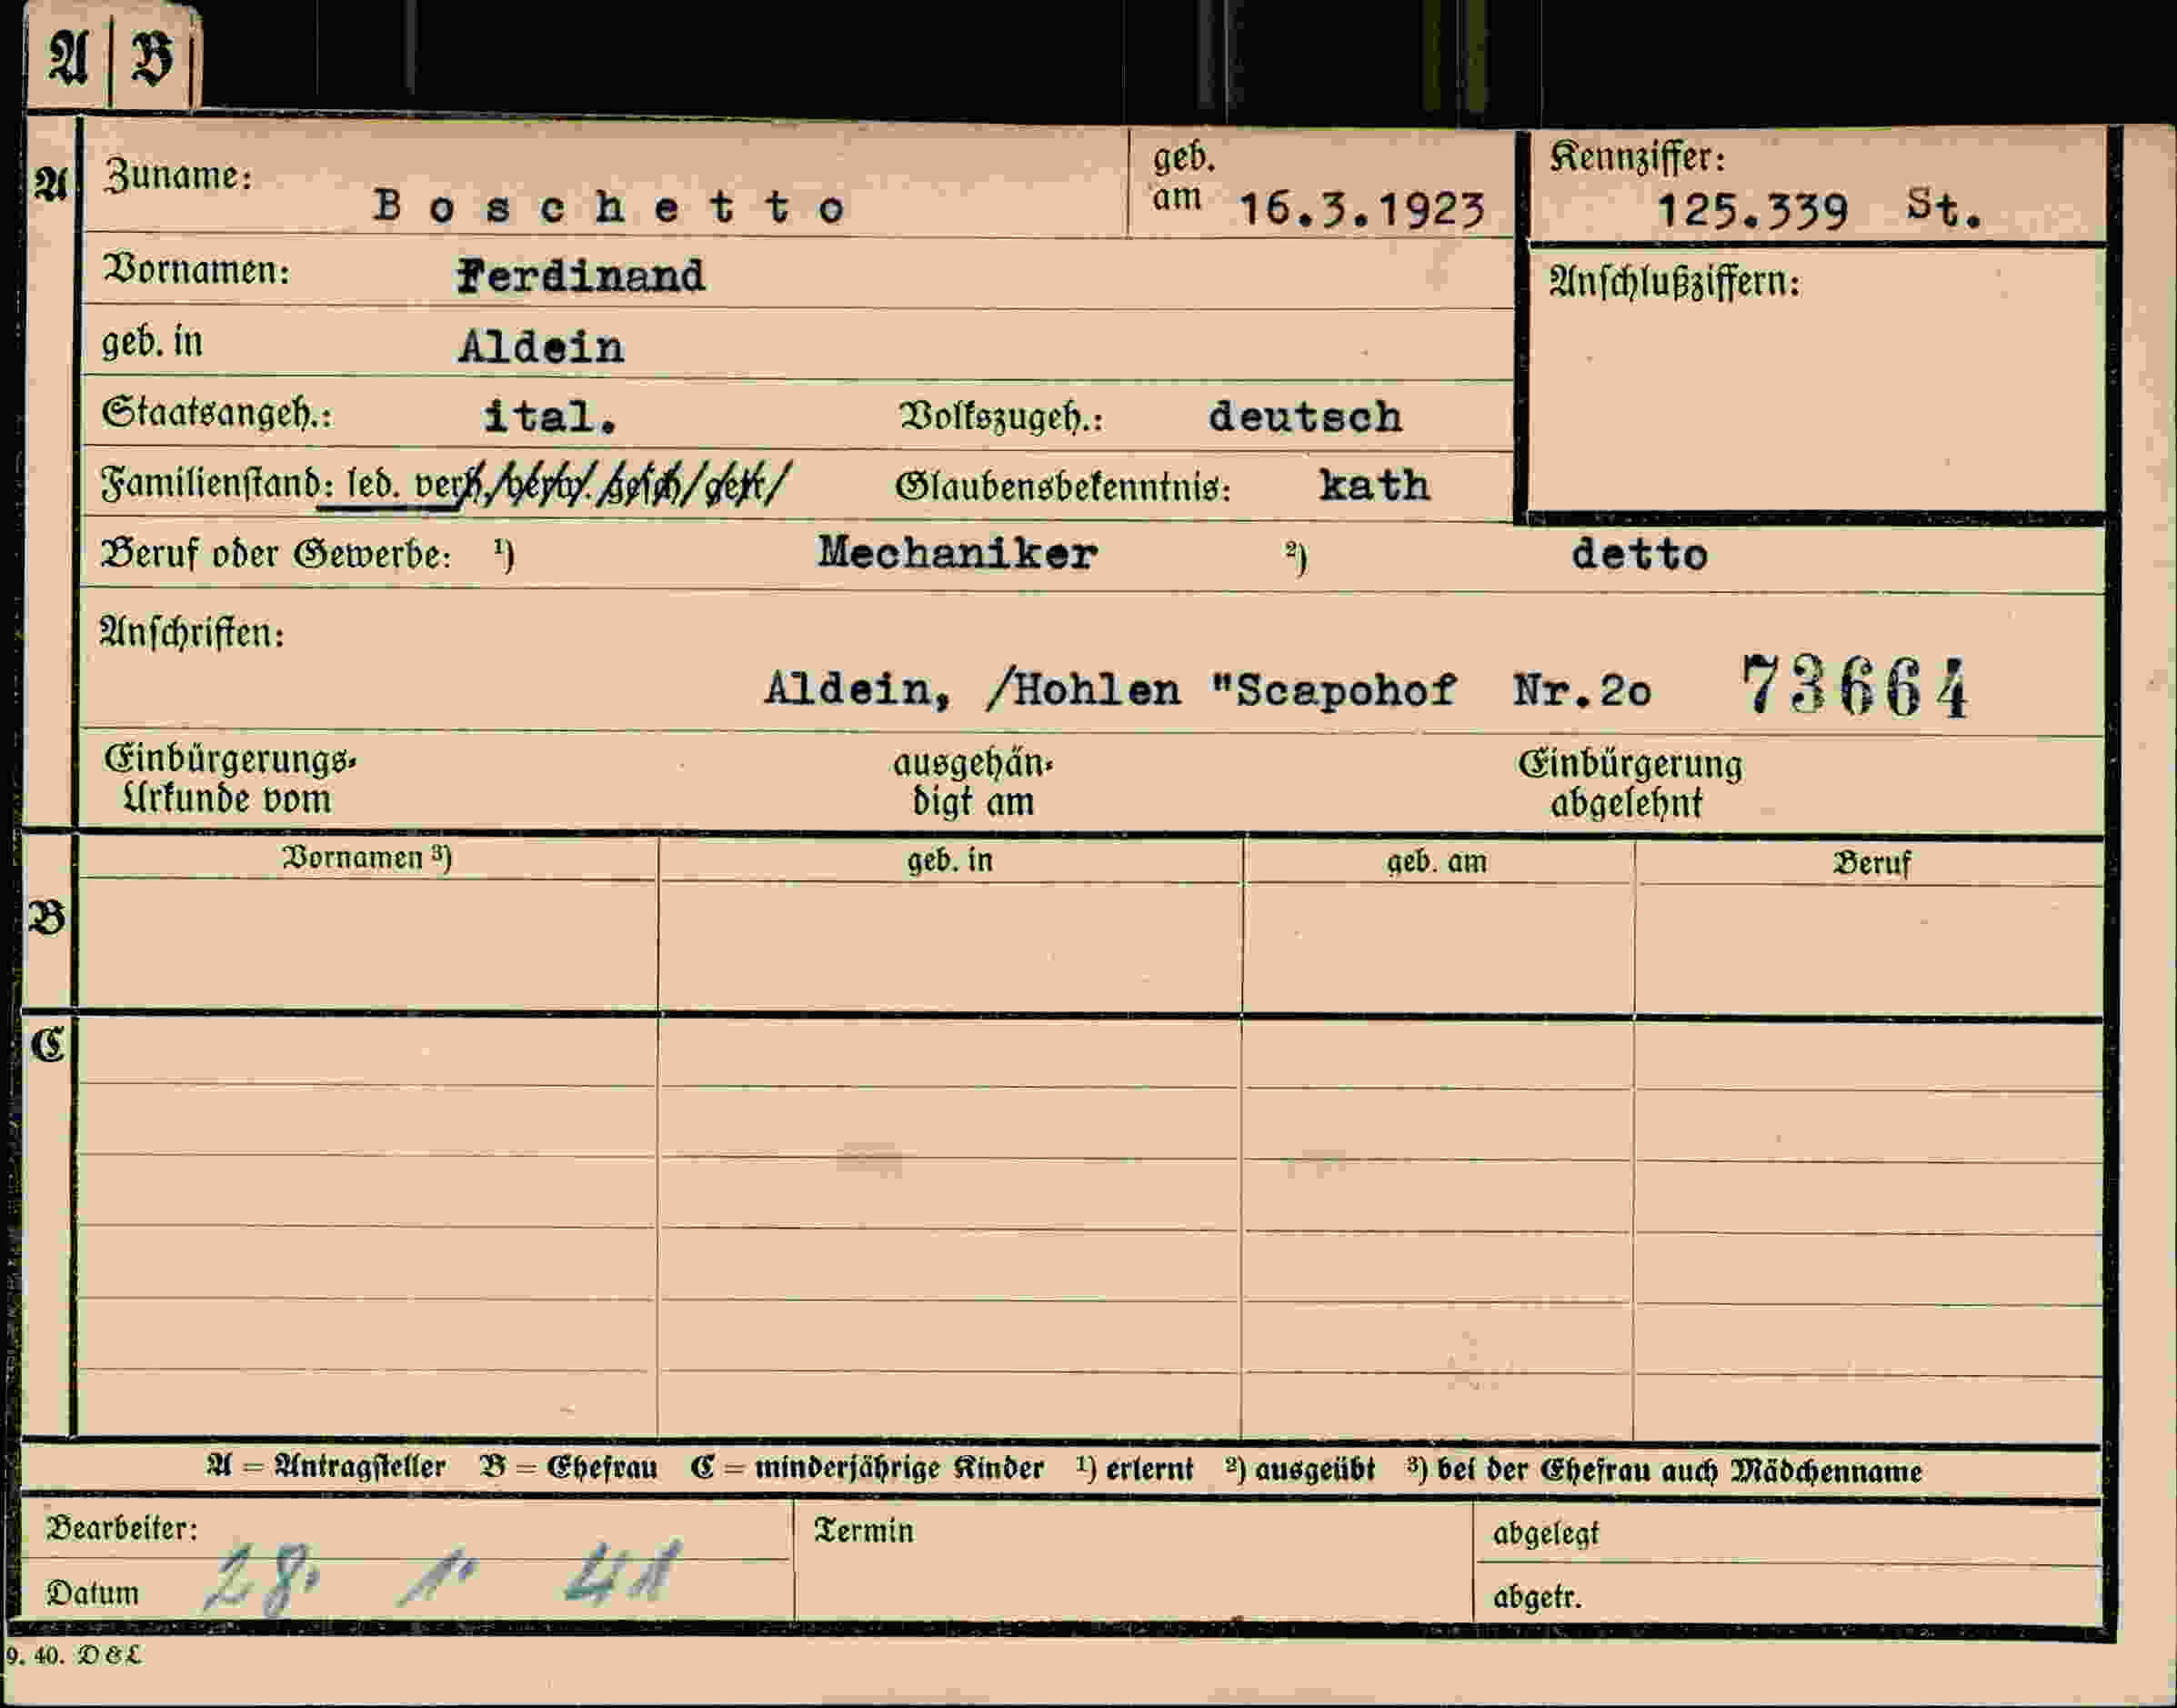 A B
A Zuname: Boschetto geb. am 16.3.1923 Kennziffer: 125.339 St.
Vornamen: Ferdinand Anschlußziffern:
geb. in Aldein
Staatsangeh.: ital. Volkszugeh.: deutsch
Familienstand: led. verh. verw. gesch. getr. Glaubensbekenntnis: kath
Beruf oder Gewerbe: ¹) Mechaniker ²) detto
Anschriften:
Aldein, /Hohlen "Scapohof Nr.2o 73664
Einbürgerungs- ausgehän- Einbürgerung
Urkunde vom digt am abgelehnt
Vornamen ³) geb. in geb. am Beruf
B
C
A = Antragsteller B = Ehefrau C = minderjährige Kinder ¹) erlernt ²) ausgeübt ³) bei der Ehefrau auch Mädchenname
Bearbeiter: Termin abgelegt
Datum 28. 1. 41 abgetr.
9. 40. D & L